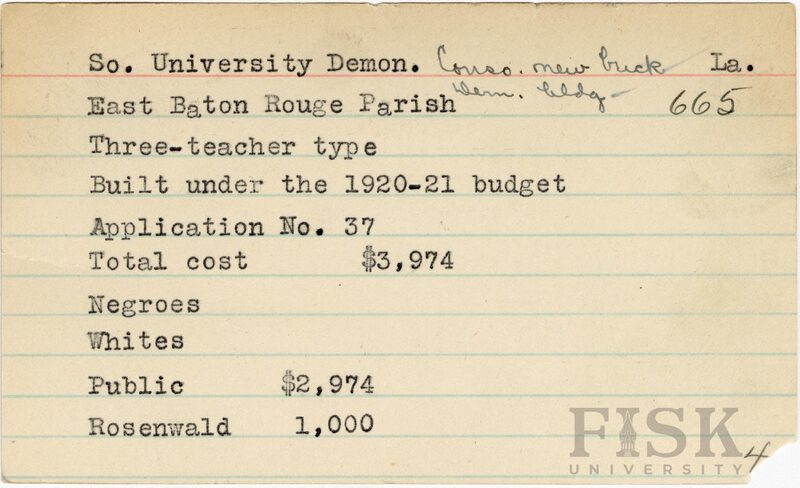 So. University Demon. Conso. new brick La.
Dem. bldg
East Baton Rouge Parish 665
Three-teacher type
Built under the 1920-21 budget
Application No. 37
Total cost $3,974
Negroes
Whites
Public $2,974
Rosenwald 1,000
FISK
UNIVERSITY
4